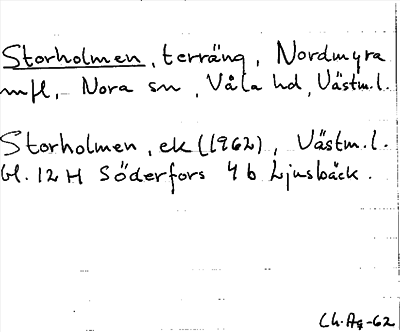 Storholmen, terräng, Nordmyra
mfl, Nora sn, Våla hd, Västm.l.
Storholmen, ek (1962), Västm.l.
bl. 12 H Söderfors 4 b Ljusbäck.
Ch.Ag-62